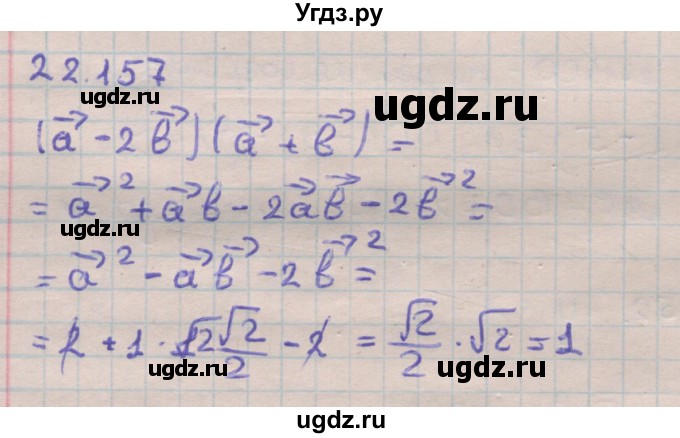 Угдз.ру
22.157
ugdz.ru
ugdz.ru
(a⃗ - 2b⃗)(a⃗ + b⃗) =
= a⃗² + a⃗b - 2a⃗b⃗ - 2b⃗² =
ugdz.ru
= a⃗² - a⃗b⃗ - 2b⃗² =
= 2 + 1 · √2 √2/2 - 2 = √2/2 · √2 = 1
ugdz.ru
ugdz.ru
ugdz.ru